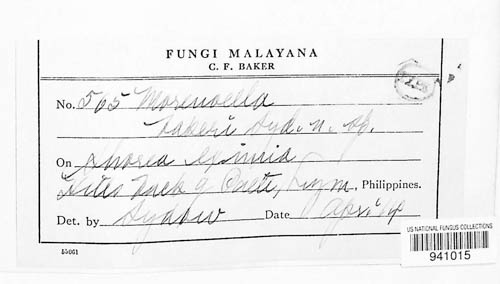 FUNGI MALAYANA
C. F. BAKER
No. 505 Morenoella
bakeri Syd. n. sp.
On Shorea eximia,
back of Paete, Luzon, Philippines.
Det. by Sydow Date Apr. '14
55061
US NATIONAL FUNGUS COLLECTIONS
941015